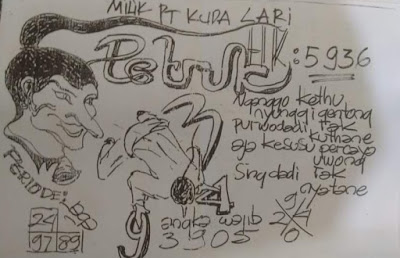 MILIK PT KUDA LARI
HK: 5936
Nganggo kethu
nyunggi gentong
Purwodadi tak
kuthane
ojo kesusu percoyo
uwong
Sing dadi tak
nyatane
PERIODE:
24
97 89
angka wajib
3905
9
2 4
0
3
4
9